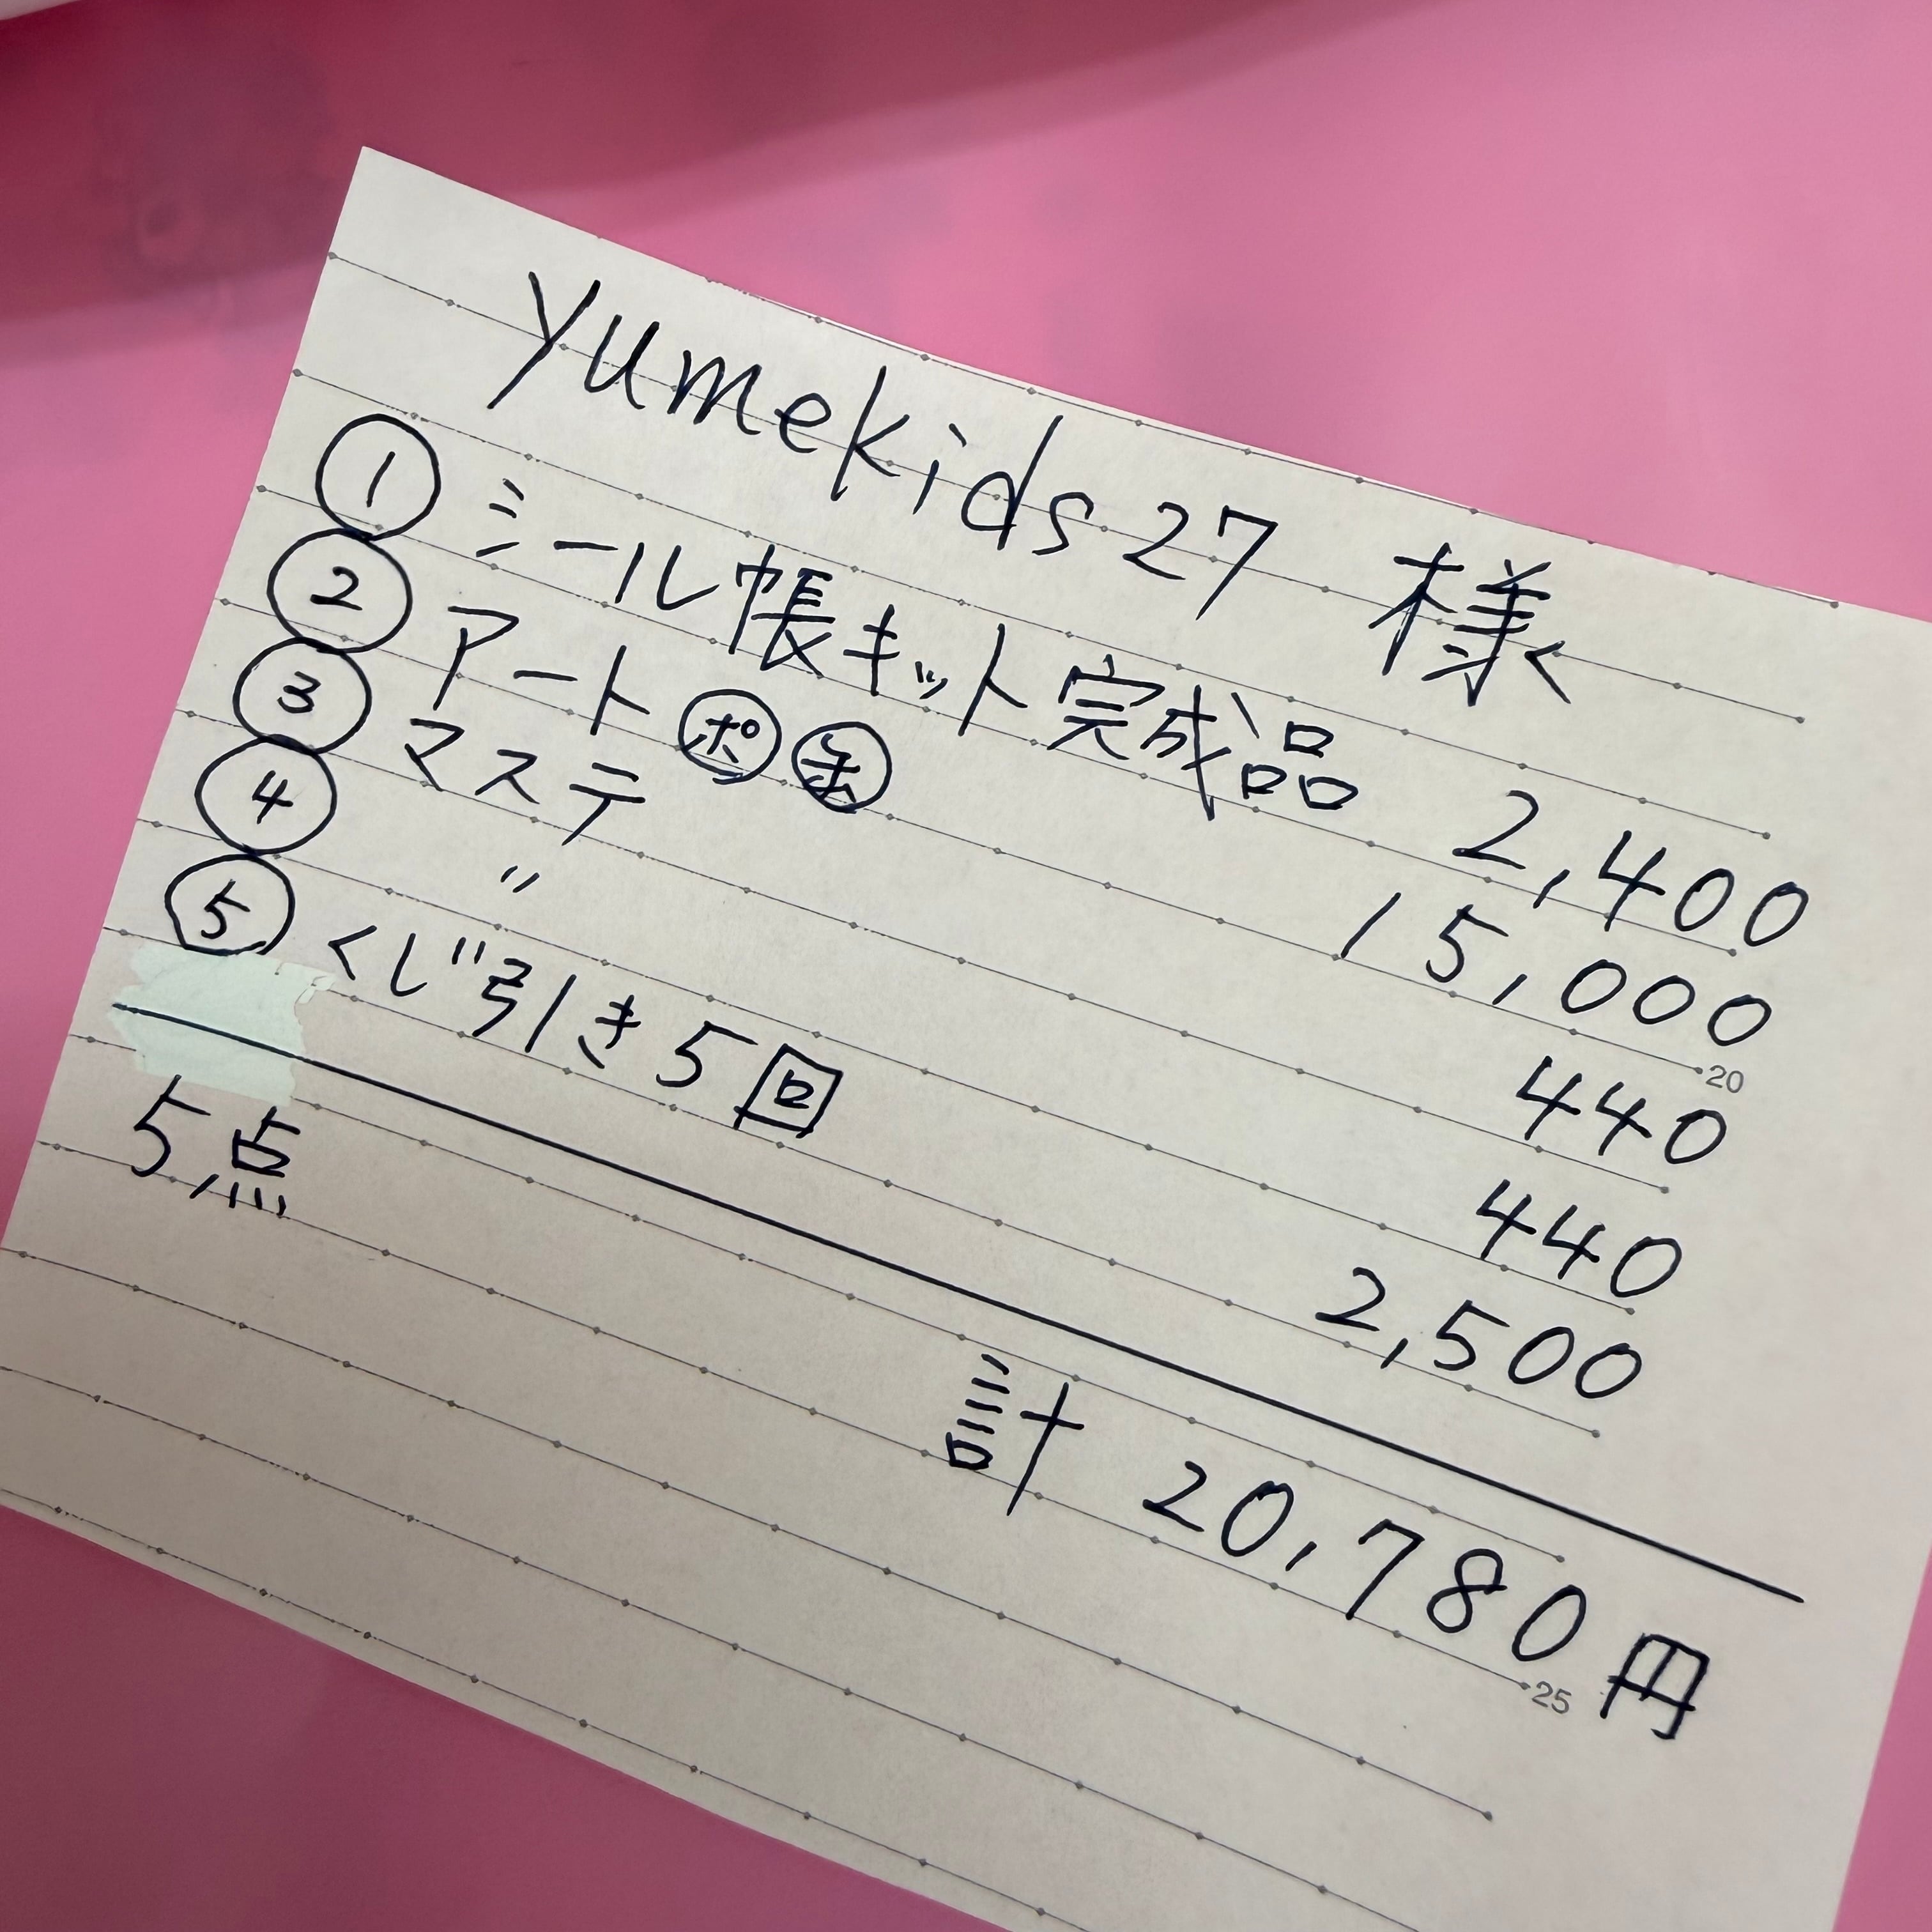 yumekids27 様
① シール帳キット完成品 2,400
② アート ㋭ 15,000
③ マステ 440
④ 〃 440
⑤ くじ引き5回 2,500
5点
計 20,780円
20
25